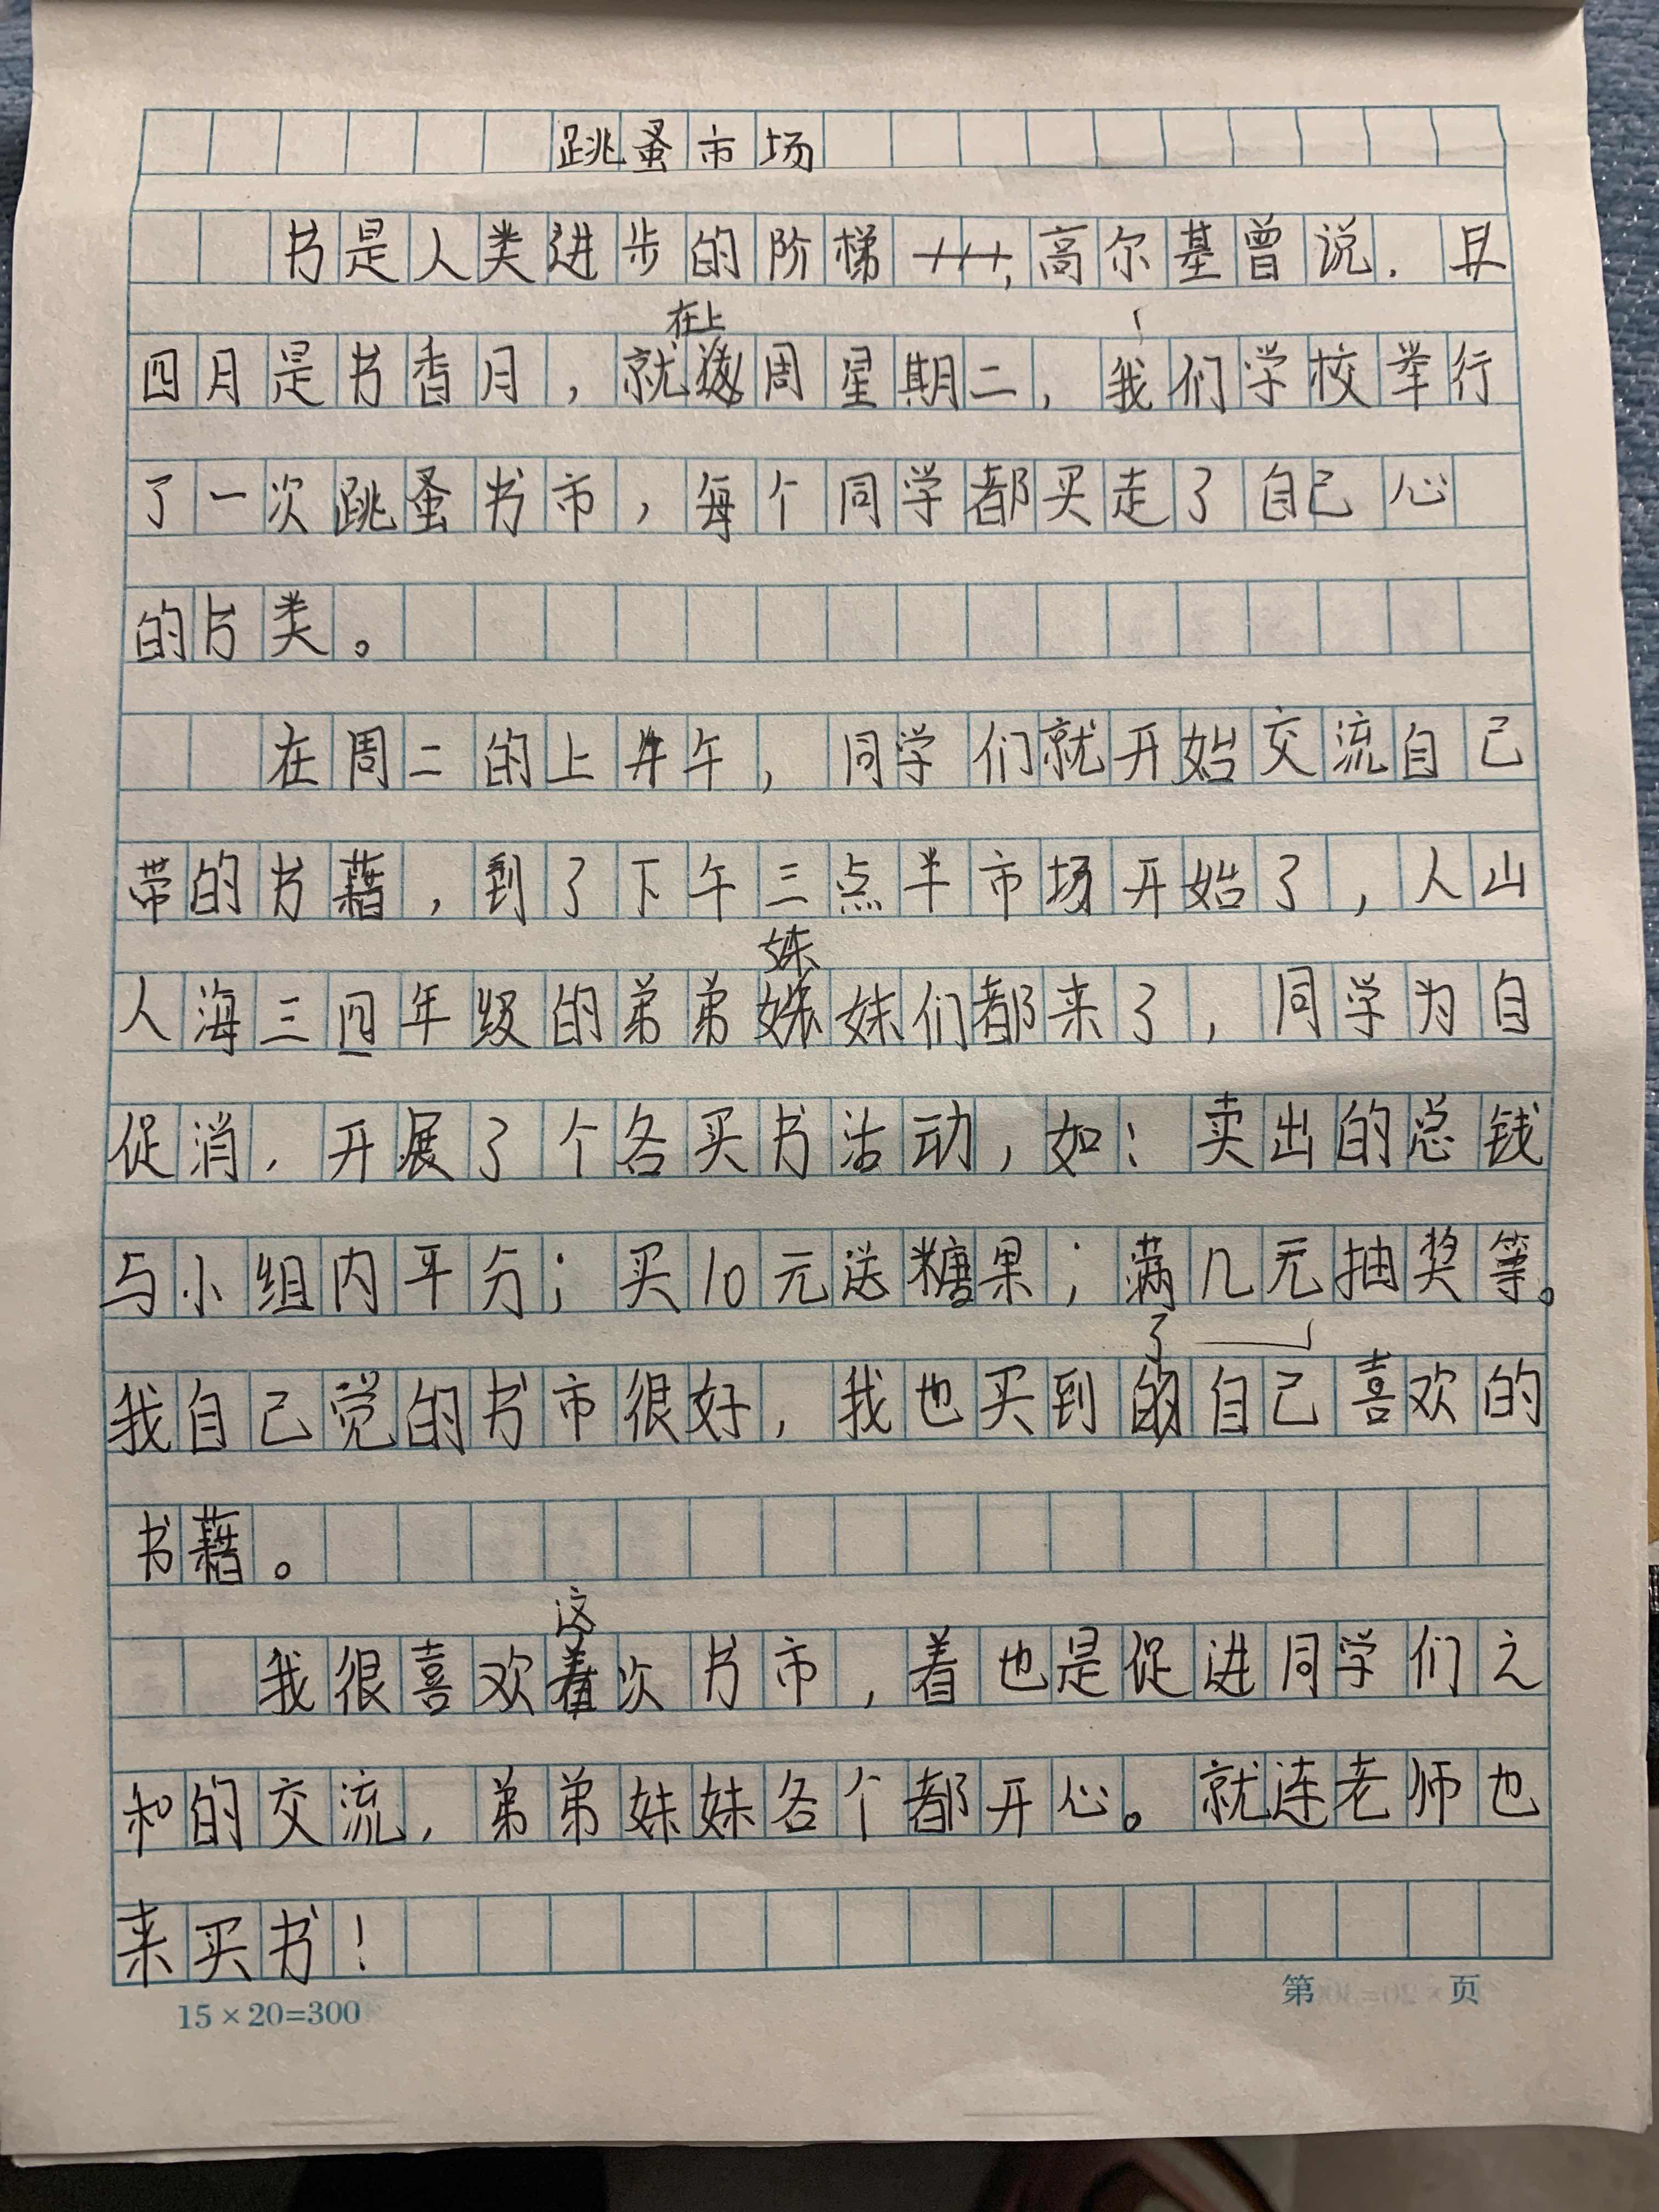 跳蚤市场
书是人类进步的阶梯，高尔基曾说.且
四月是书香月，就在上周星期二，我们学校举行
了一次跳蚤书市，每个同学都买走了自己心
的书类。
在周二的上午，同学们就开始交流自己
带的书藉，到了下午三点半市场开始了，人山
人海三四年级的弟弟妹妹们都来了，同学为自
促消，开展了个各买书活动，如：卖出的总钱
与小组内平分；买10元送糖果；满几元抽奖等。
我自己觉的书市很好，我也买到了自己喜欢的
书藉。
我很喜欢这次书市，着也是促进同学们之
和的交流，弟弟妹妹各个都开心。就连老师也
来买书！
15×20=300
第 页